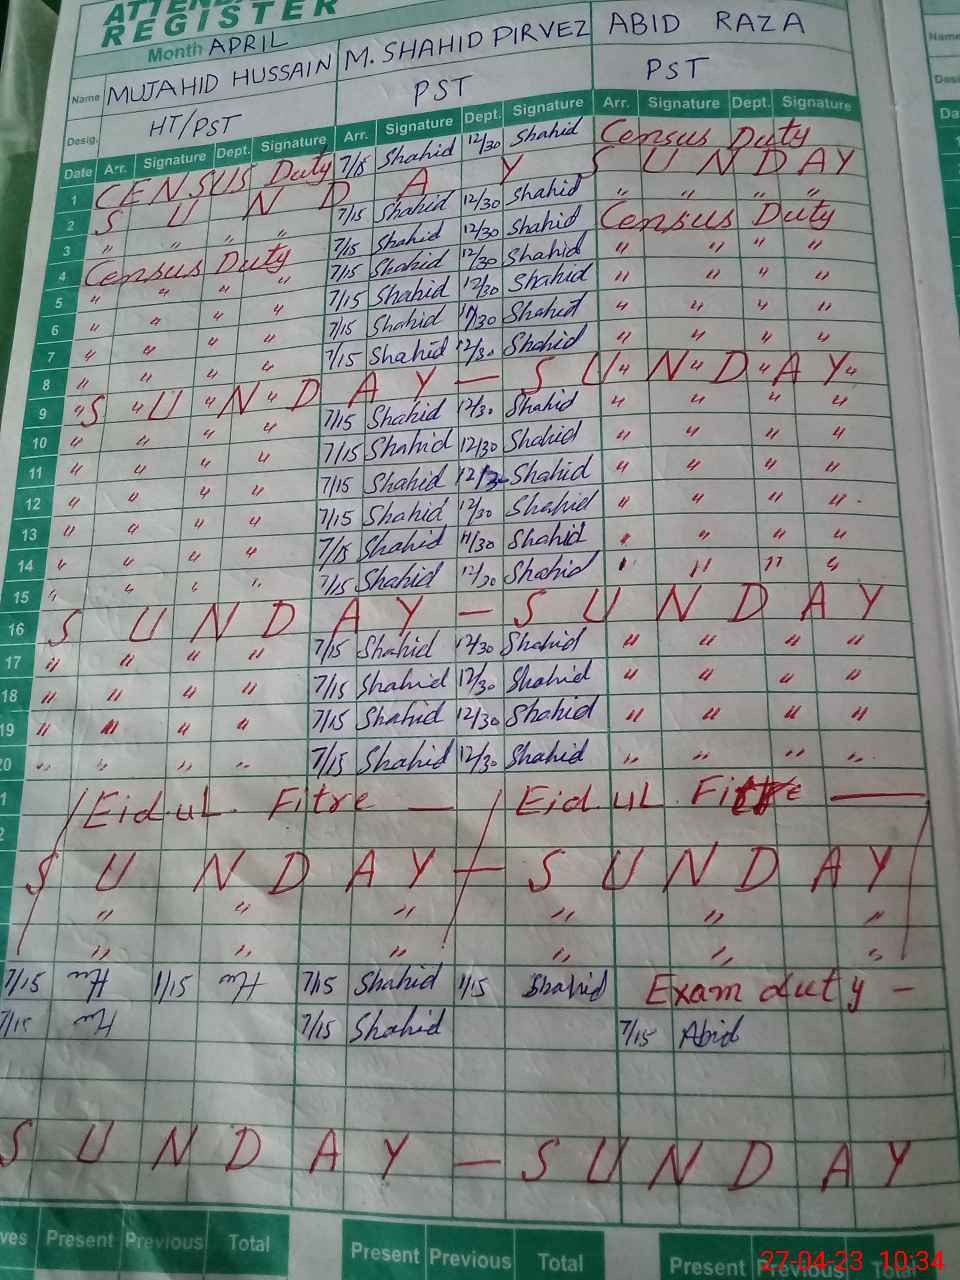 REGISTER
Month APRIL
Name MUJAHID HUSSAIN M. SHAHID PIRVEZ ABID RAZA
Desig. HT/PST PST PST
Date Arr. Signature Dept. Signature Arr. Signature Dept. Signature Arr. Signature Dept. Signature
1 CENSUS Duty 7/15 Shahid 12/30 Shahid Census Duty
2 S U N D A Y S U N D A Y
3 " " " " 7/15 Shahid 12/30 Shahid " " " "
4 Census Duty 7/15 Shahid 12/30 Shahid Census Duty
5 " " " " 7/15 Shahid 12/30 Shahid " " " "
6 " " " " 7/15 Shahid 12/30 Shahid " " " "
7 " " " " 7/15 Shahid 11/30 Shahid " " " "
8 " " " " 7/15 Shahid 12/30 Shahid " " " "
9 " S " U " N " D A Y — S U " N " D " A Y "
10 " " " " 7/15 Shahid 12/30 Shahid " " " "
11 " " " " 7/15 Shahid 12/30 Shahid " " " "
12 " " " " 7/15 Shahid 12/30 Shahid " " " "
13 " " " " 7/15 Shahid 12/30 Shahid " " " "
14 " " " " 7/15 Shahid 11/30 Shahid " " " "
15 " " " " 7/15 Shahid 12/30 Shahid " " " "
16 S U N D A Y — S U N D A Y
17 " " " " 7/15 Shahid 12/30 Shahid " " " "
18 " " " " 7/15 Shahid 12/30 Shahid " " " "
19 " " " " 7/15 Shahid 12/30 Shahid " " " "
20 " " " " 7/15 Shahid 12/30 Shahid " " " "
1 Eid.uL. Fitre — Eid.uL. Fitre —
2
S U N D A Y — S U N D A Y
" " " " " "
" " " " " "
7/15 1/15 7/15 Shahid 1/15 Shahid Exam duty -
7/15 7/15 Shahid 7/15 Abid
S U N D A Y — S U N D A Y
ves Present Previous Total Present Previous Total Present Previous Total
27-04-23 10:34
Name
Desi
Da